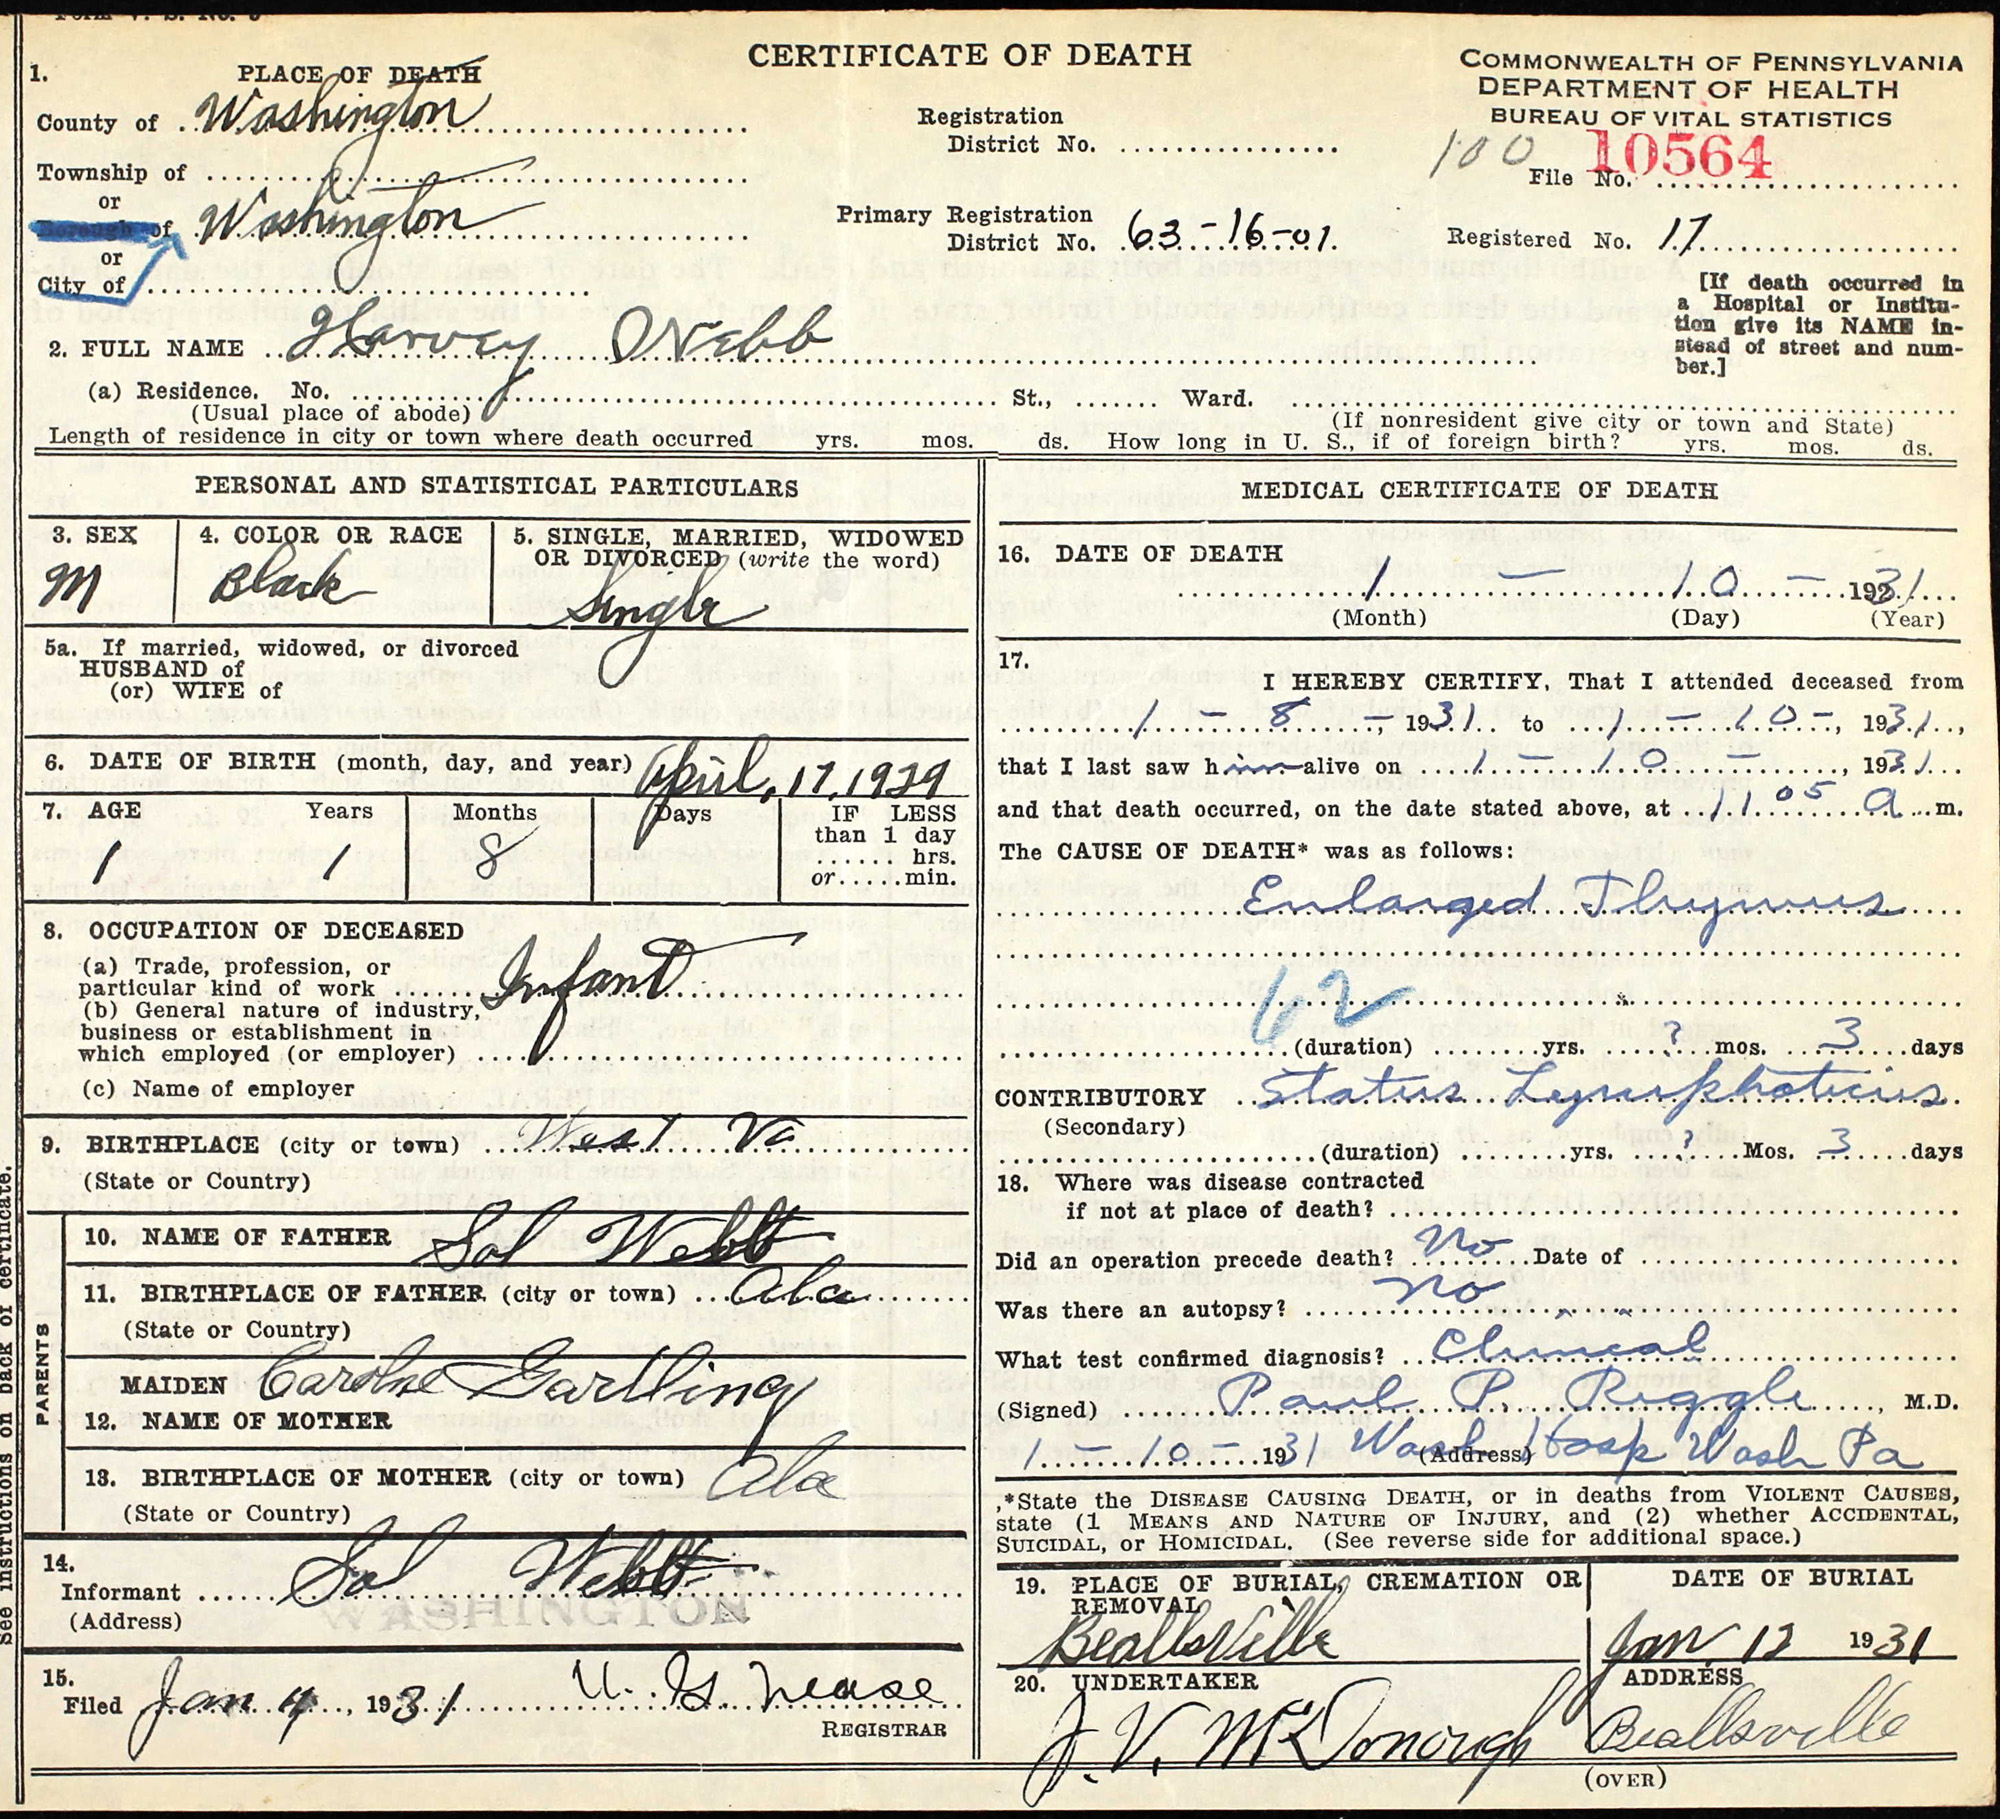 CERTIFICATE OF DEATH
COMMONWEALTH OF PENNSYLVANIA
DEPARTMENT OF HEALTH
BUREAU OF VITAL STATISTICS
1. PLACE OF DEATH
County of Washington
Township of
or
Borough of Washington
or
City of
Registration
District No.
Primary Registration
District No. 63-16-01
100 10564
File No.
Registered No. 17
[If death occurred in
a Hospital or Institu-
tion give its NAME in-
stead of street and num-
ber.]
2. FULL NAME Harvey Webb
(a) Residence. No. St., Ward.
(Usual place of abode) (If nonresident give city or town and State)
Length of residence in city or town where death occurred yrs. mos. ds. How long in U. S., if of foreign birth? yrs. mos. ds.
PERSONAL AND STATISTICAL PARTICULARS
3. SEX 4. COLOR OR RACE 5. SINGLE, MARRIED, WIDOWED
OR DIVORCED (write the word)
M Black Single
5a. If married, widowed, or divorced
HUSBAND of
(or) WIFE of
6. DATE OF BIRTH (month, day, and year) April, 17, 1929
7. AGE Years Months Days IF LESS
than 1 day
hrs.
or min.
1 1 8
8. OCCUPATION OF DECEASED
(a) Trade, profession, or
particular kind of work Infant
(b) General nature of industry,
business or establishment in
which employed (or employer)
(c) Name of employer
9. BIRTHPLACE (city or town) West Va
(State or Country)
PARENTS
10. NAME OF FATHER Sol Webb
11. BIRTHPLACE OF FATHER (city or town) Ala
(State or Country)
MAIDEN
12. NAME OF MOTHER
13. BIRTHPLACE OF MOTHER (city or town) Ala
(State or Country)
14.
Informant Sol Webb
(Address) WASHINGTON
15.
Filed Jan 4, 1931 U. G. Lease
REGISTRAR
See instructions on back of certificate.
MEDICAL CERTIFICATE OF DEATH
16. DATE OF DEATH
1 - 10 - 1931
(Month) (Day) (Year)
17.
I HEREBY CERTIFY, That I attended deceased from
1 - 8 -, 1931 to 1 - 10 -, 1931,
that I last saw him alive on 1 - 10 -, 1931
and that death occurred, on the date stated above, at 11 05 a m.
The CAUSE OF DEATH* was as follows:
Enlarged Thymus
62
(duration) yrs. ? mos. 3 days
CONTRIBUTORY Status Lymphaticus
(Secondary)
(duration) yrs. ? Mos. 3 days
18. Where was disease contracted
if not at place of death?
Did an operation precede death? No Date of
Was there an autopsy? no
What test confirmed diagnosis? Clinical
(Signed) Paul P. Riggle, M.D.
1 - 10 - 1931 (Address) Wash Hosp Wash Pa
*State the DISEASE CAUSING DEATH, or in deaths from VIOLENT CAUSES,
state (1 MEANS AND NATURE OF INJURY, and (2) whether ACCIDENTAL,
SUICIDAL, or HOMICIDAL. (See reverse side for additional space.)
19. PLACE OF BURIAL, CREMATION OR
REMOVAL
Beallsville
DATE OF BURIAL
Jan 12 1931
20. UNDERTAKER
J. V. McDonough
ADDRESS
Beallsville
(OVER)